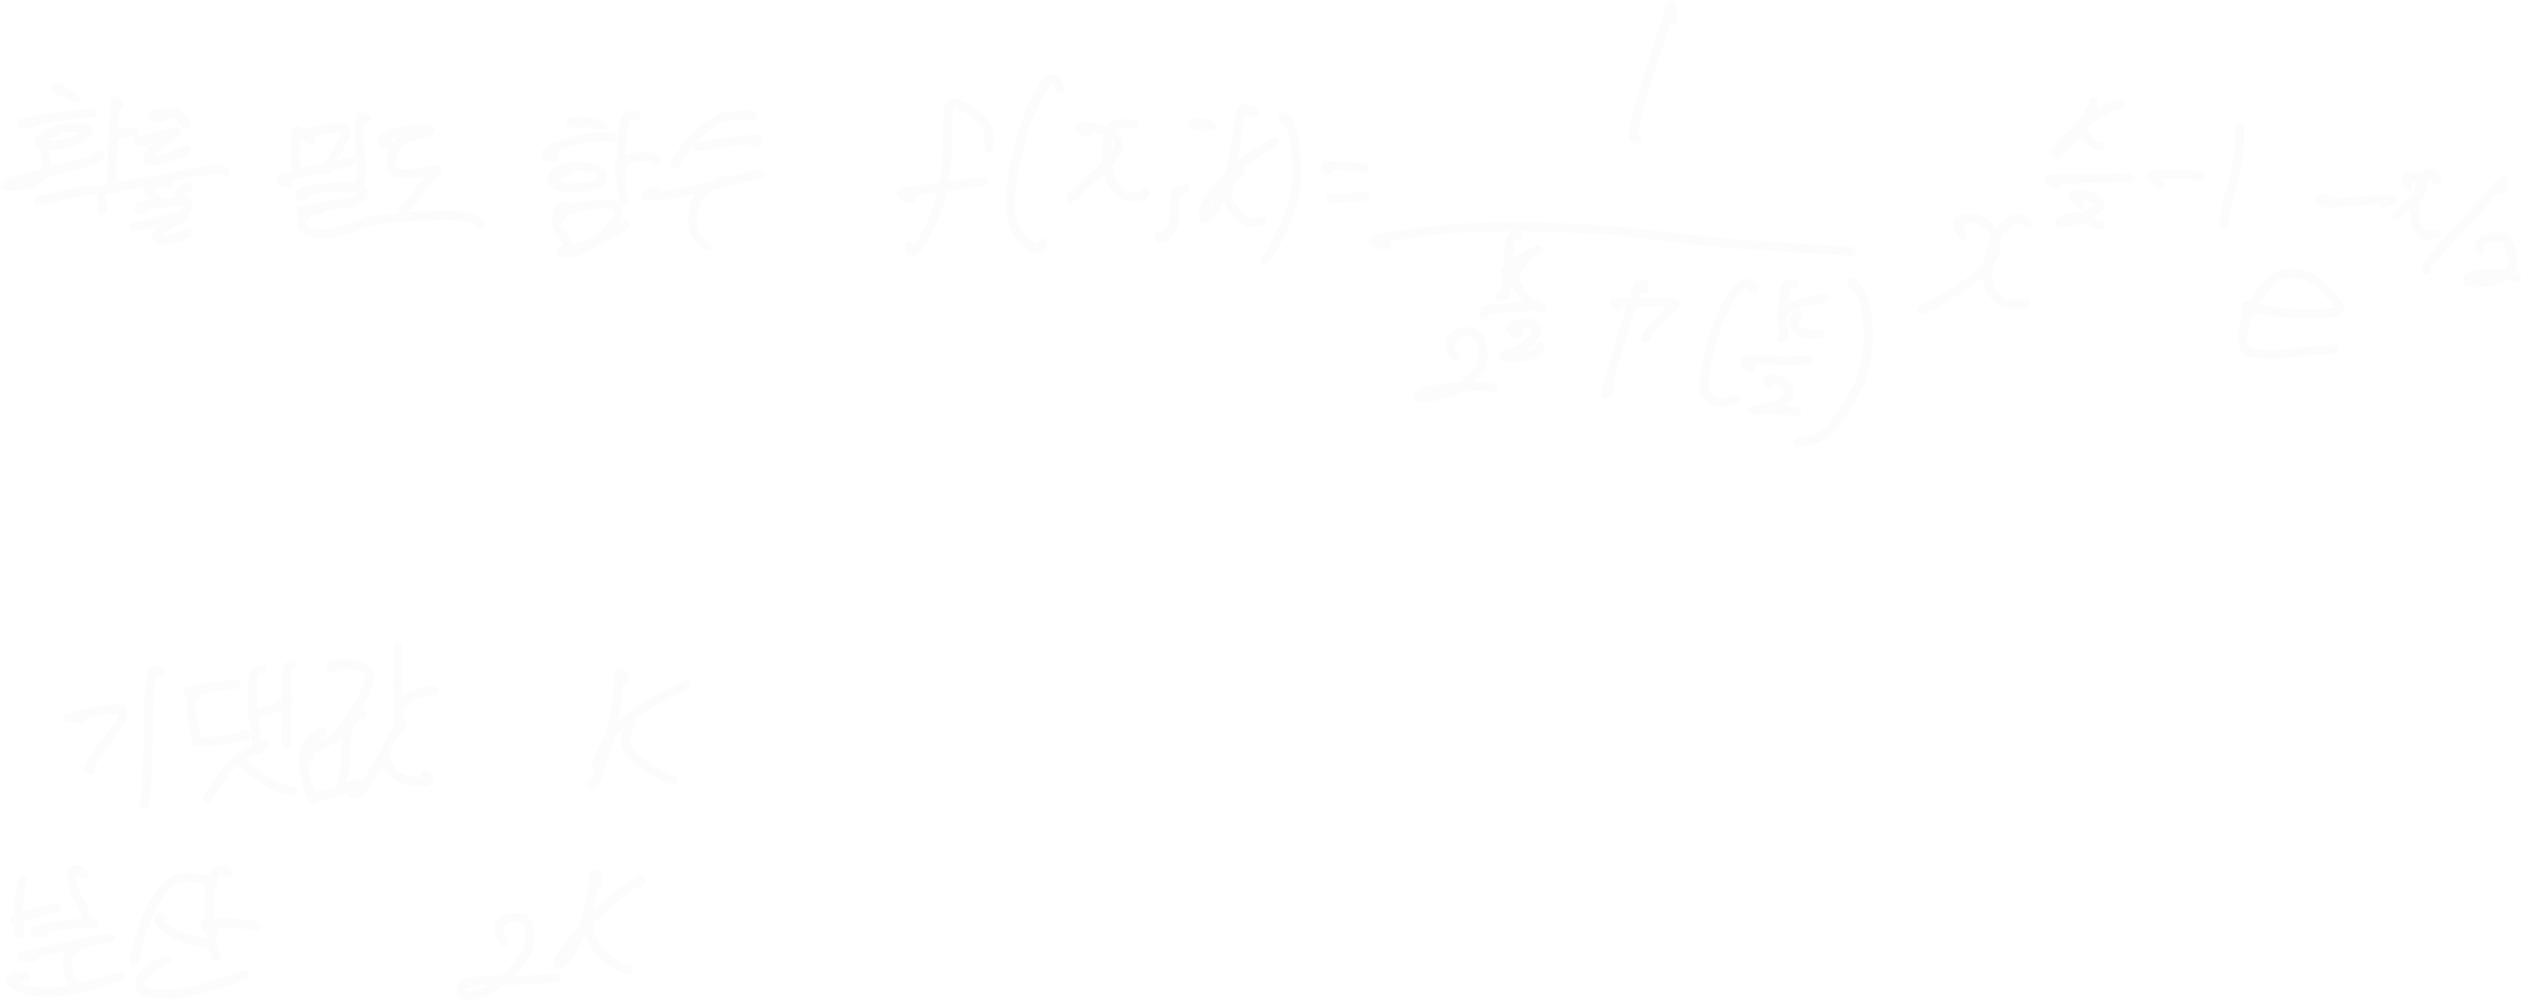 확률 밀도 함수 f(x;k) = \frac{1}{2^{\frac{k}{2}} Γ(\frac{k}{2})} x^{\frac{k}{2}-1} e^{-x/2}
기댓값 K
분산 2K